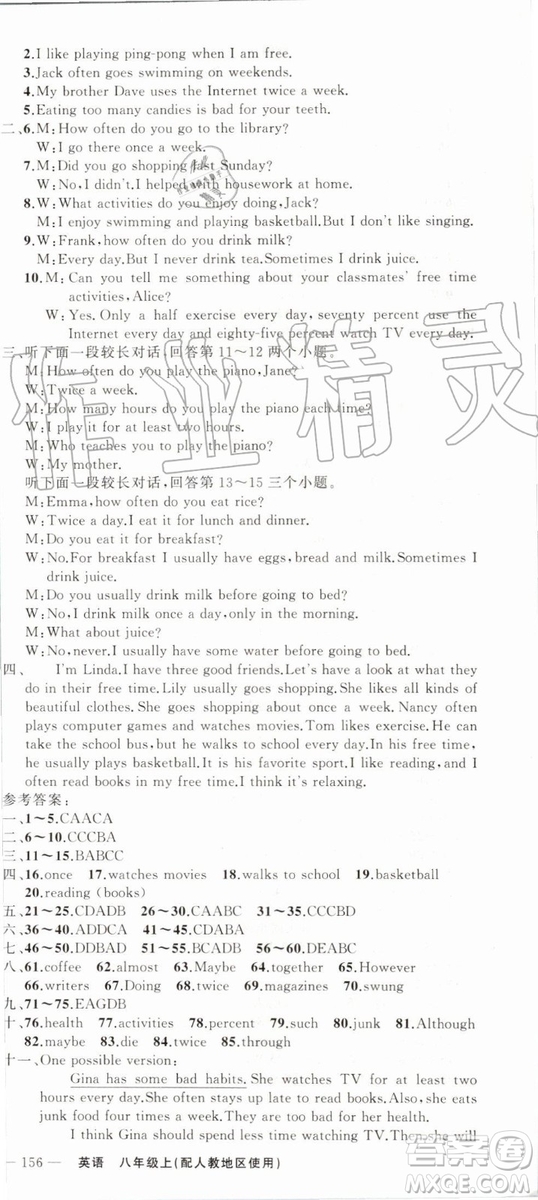 2.I like playing ping-pong when I am free.
3.Jack often goes swimming on weekends.
4.My brother Dave uses the Internet twice a week.
5.Eating too many candies is bad for your teeth.
二、6.M:How often do you go to the library?
W:I go there once a week.
7.M:Did you go shopping last Sunday?
W:No,I didn't.I helped with housework at home.
8.W:What activities do you enjoy doing,Jack?
M:I enjoy swimming and playing basketball.But I don't like singing.
9.W:Frank,how often do you drink milk?
M:Every day.But I never drink tea.Sometimes I drink juice.
10.M:Can you tell me something about your classmates' free time
activities,Alice?
W:Yes. Only a half exercise every day,seventy percent use the
Internet every day and eighty-five percent watch TV every day.
三、听下面一段较长对话,回答第11～12两个小题。
M:How often do you play the piano,Jane?
W:Twice a week.
M:How many hours do you play the piano each time?
W:I often play it for at least two hours.
M:Who teaches you to play the piano?
W:My mother.
听下面一段较长对话,回答第13～15三个小题。
M:Emma,how often do you eat rice?
W:Twice a day.I eat it for lunch and dinner.
M:Do you eat it for breakfast?
W:No.For breakfast I usually have eggs,bread and milk.Sometimes I
drink juice.
M:Do you usually drink milk before going to bed?
W:No.I drink milk once a day,only in the morning.
M:What about juice?
W:No,never.I usually have some water before going to bed.
四、 I'm Linda.I have three good friends.Let's have a look at what they
do in their free time.Lily usually goes shopping.She likes all kinds of
beautiful clothes. She goes shopping about once a week. Nancy often
plays computer games and watches movies.Tom likes exercise.He can
take the school bus,but he walks to school every day.In his free time,
he usually plays basketball.It is his favorite sport.I like reading,and I
often read books in my free time.I think it's relaxing.
参考答案:
一、1～5.CAACA
二、6～10.CCCBA
三、11～15.BABCC
四、16.once 17.watches movies 18.walks to school 19.basketball
20.reading (books)
五、21～25.CDADB 26～30.CAABC 31～35.CCCBD
六、36～40.ADDCA 41～45.CDABA
七、46～50.DDBAD 51～55.BCADB 56～60.DCABC
八、61.coffee 62.almost 63.Maybe 64.together 65.However
66.writers 67.Doing 68.twice 69.mind 70.dentist
九、71～75.EAGDB
十、76.health 77.activities 78.percent 79.such 80.junk 81.Although
82.maybe 83.die 84.twice 85.through
十一、One possible version:
Gina has some bad habits. She watches TV for at least two
hours every day.She almost never reads books.Also,she eats
junk food four times a week.They are bad for her health.
I think Gina should spend less time watching TV.She will
— 156 — 英语 八年级上(配人教地区使用)
作业精灵